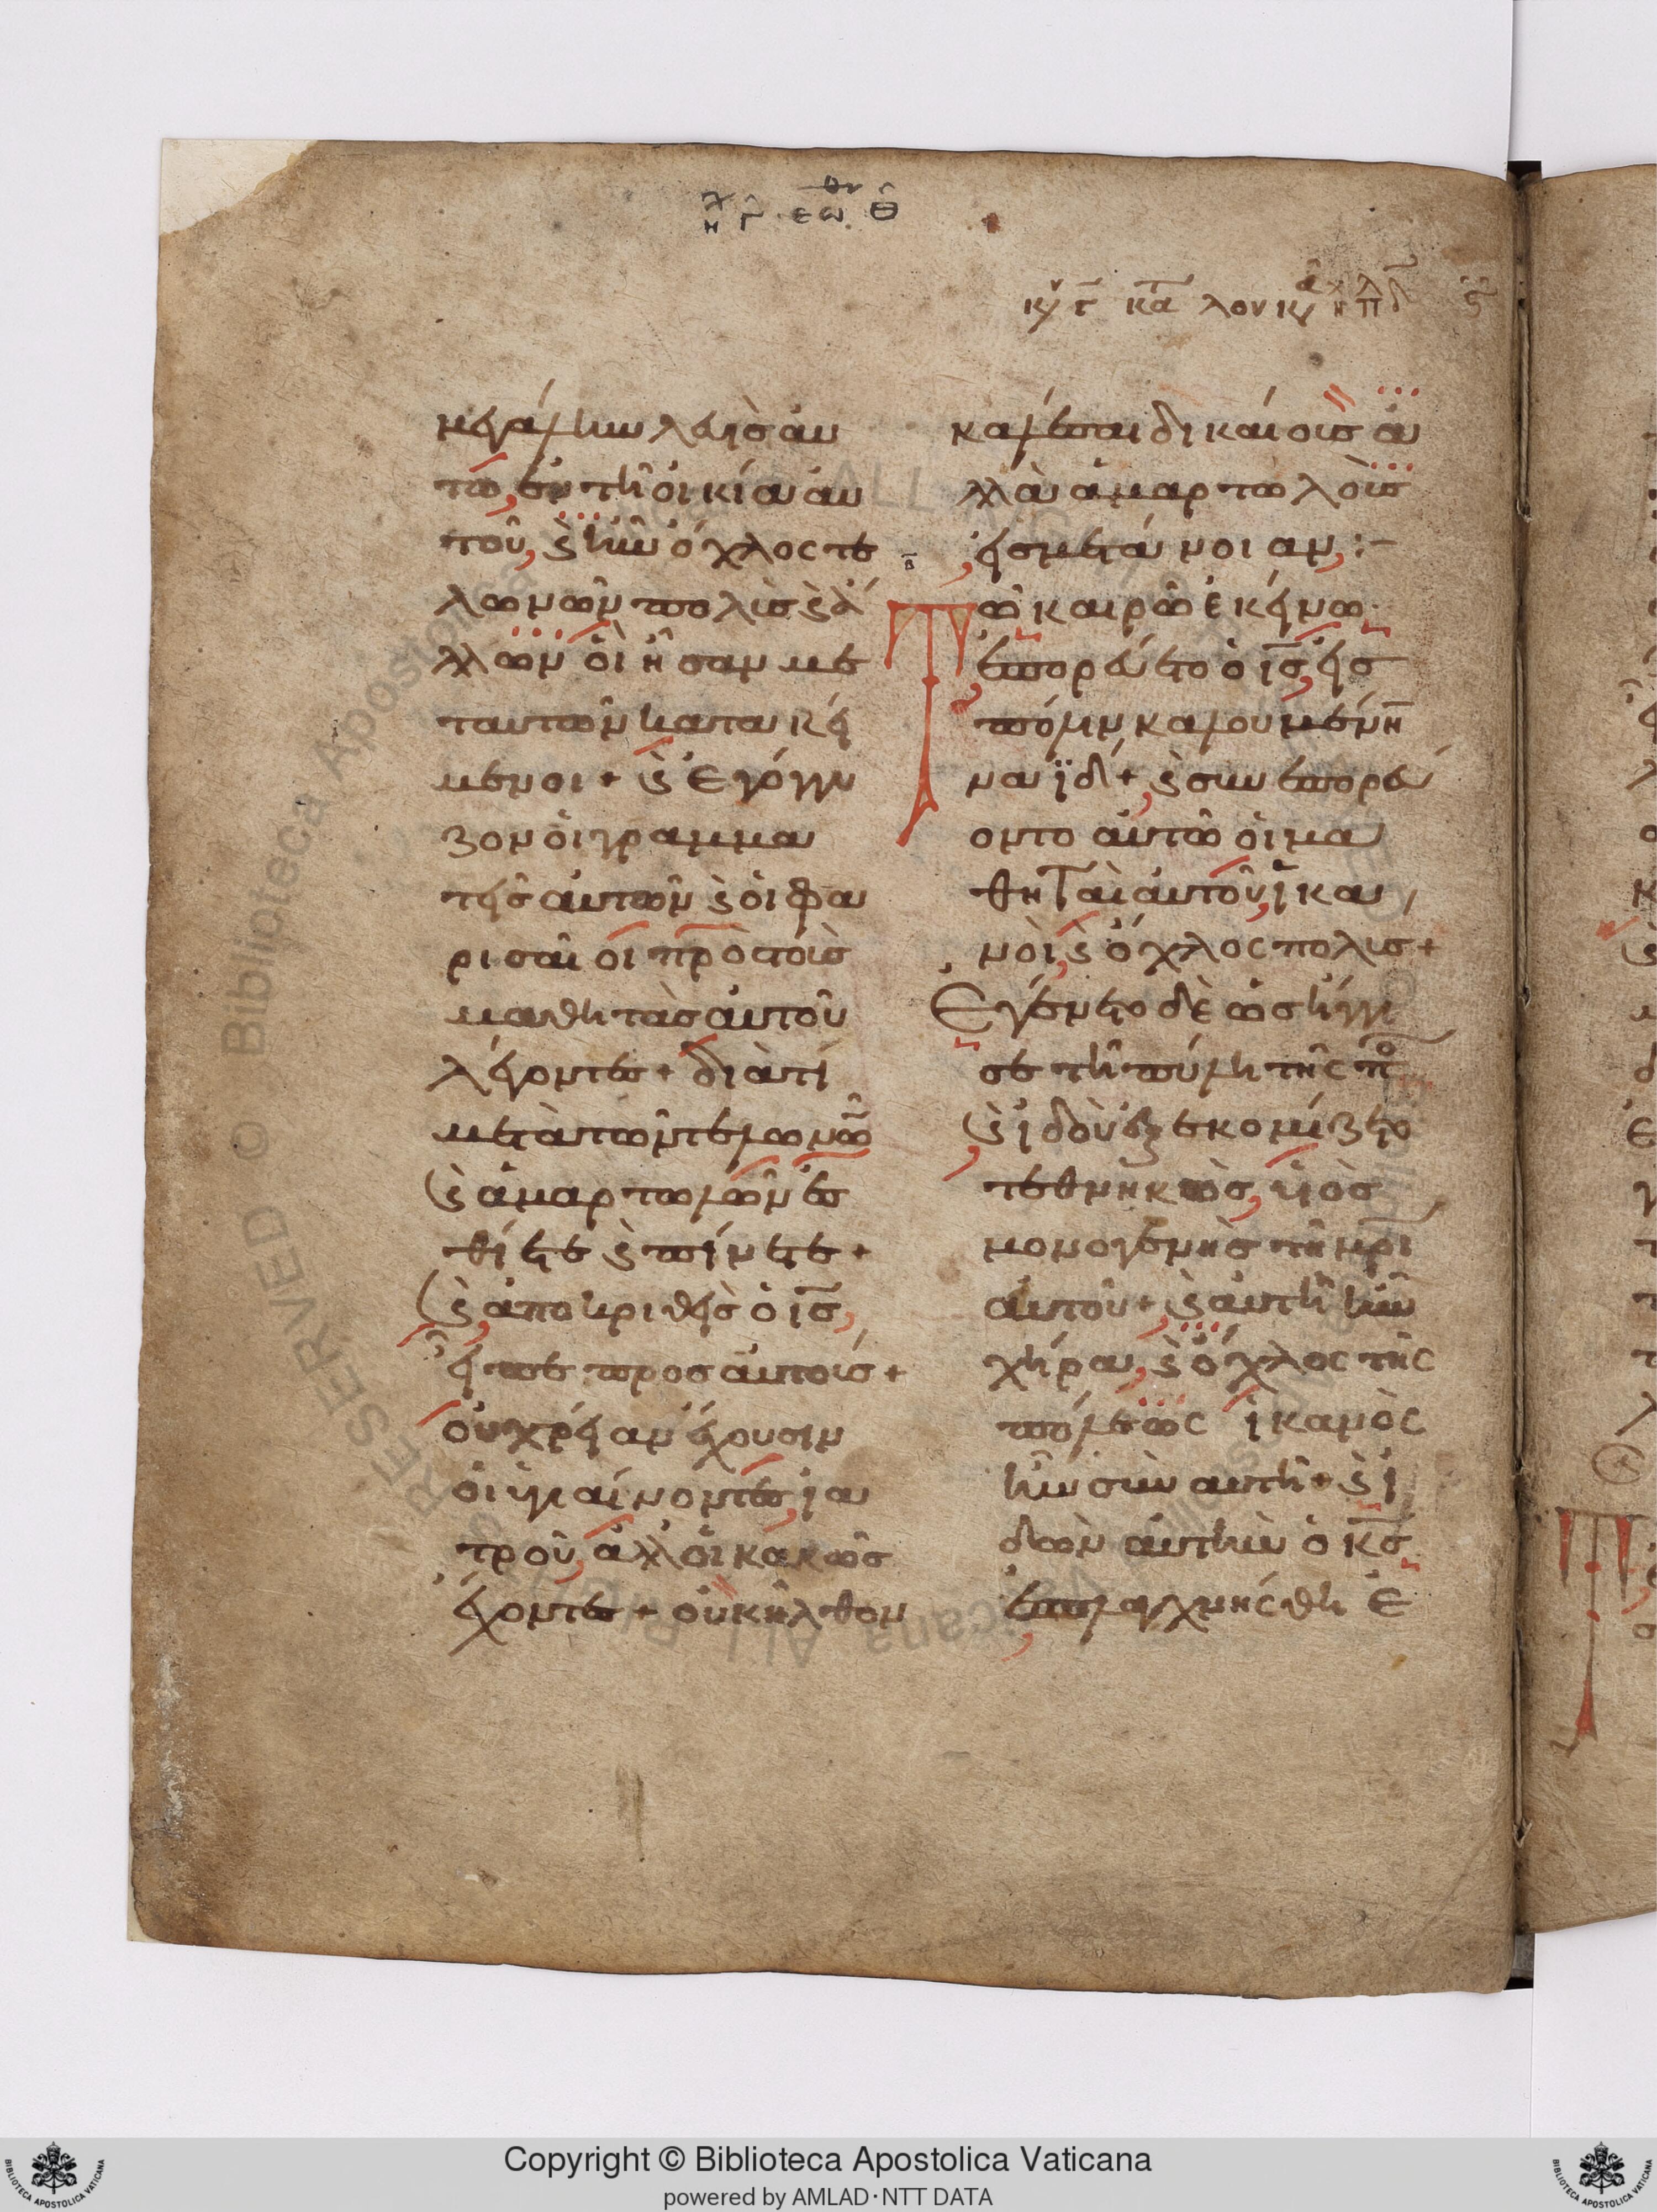 κυ γ κατ λουκ
μεγάλην λευὶς αυ
τω, ἐν τῆ οἰκία αυ
τοῦ, ϗ ἦν ὄχλος τε
λωνῶν πολὺς ϗ ἄ
λλων οἳ ἦσαν με
τ αυτῶν κατακεί
μενοι + ϗ ἐγόγγυ
ζον ὁι γραμμα
τεῖς αυτῶν ϗ ὁι φα
ρισαῖοι πρὸς τοὺς
μαθητὰς αυτοῦ
λέγοντες + διὰ τί
μετὰ τῶν τελωνῶ
ϗ ἁμαρτωλῶν ἐσ
θίετε ϗ πίνετε +
ϗ ἀποκριθεὶς ὁ ις,
εἶπε προς αυτούς +
οὐ χρείαν έχουσιν
ὁι ὑγιαίνοντες, ἰα
τροῦ, ἀλλ ὁι κακῶς
έχοντες + οὐκ ῆλθον
καλέσαι δικαίους ἀ
λλὰ ἁμαρτωλοὺς
εἰς μετάνοιαν, :–
Τῶ καιρῶ ἐκείνω.
ἐπορεύετο ὁ ις, εἰς
πόλιν καλουμένη
ναΐν + ϗ συνεπορεύ
οντο αὐτῶ ὁι μα
θηταὶ αὐτοῦ, ἱκα
νοὶ, ϗ ὄχλος πολυς +
Ἐγένετο δὲ ὡς ἤγγι
σε τῆ πύλη τῆς πο
ϗ ἰδοὺ ἐξεκομίζετο
τεθνηκὼς, υἱὸς
μονογενὴς τῆ μρι
αὐτοῦ + ϗ αὐτὴ ἦν
χήρα, ϗ ὄχλος τῆς
πόλεως ἱκανὸς
ἦν σὺν αυτῆ + ϗ ἰ
δὼν αὐτὴν ὁ κς
ἐσπλαγχνίσθη ἐ